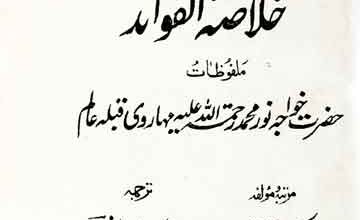 خلاصۃ الفوائد
ملفوظات
حضرت خواجہ نور محمد رحمتہ اللہ علیہ مہاروی قبلہ عالم
مرتبہ مؤلفہ ترجمہ